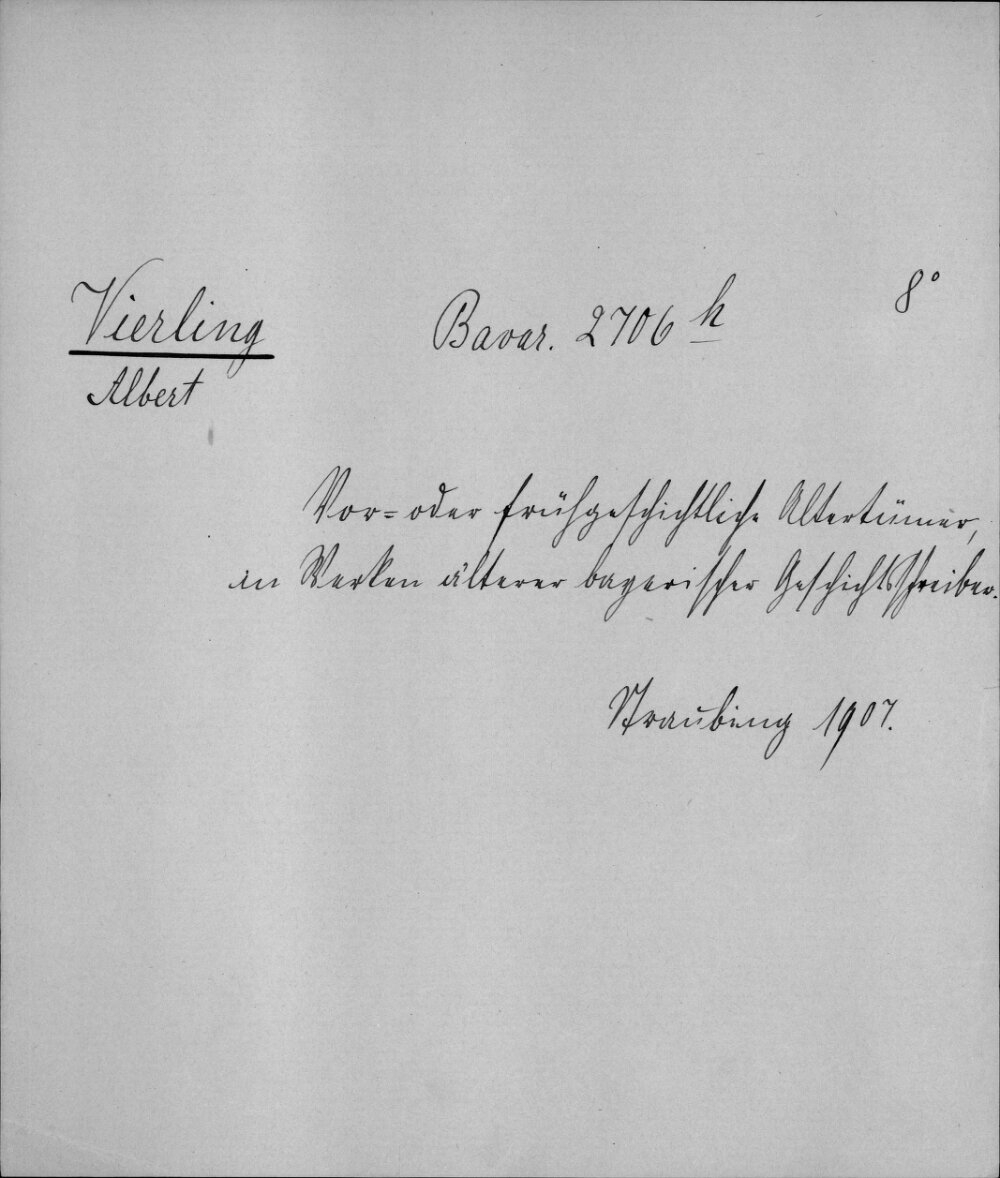 Vierling
Albert
Bavar. 2706 h
8°
Vor= oder frühgeschichtliche Altertümer,
in Werken älterer bayerischer Geschichtsschreiber.
Straubing 1907.